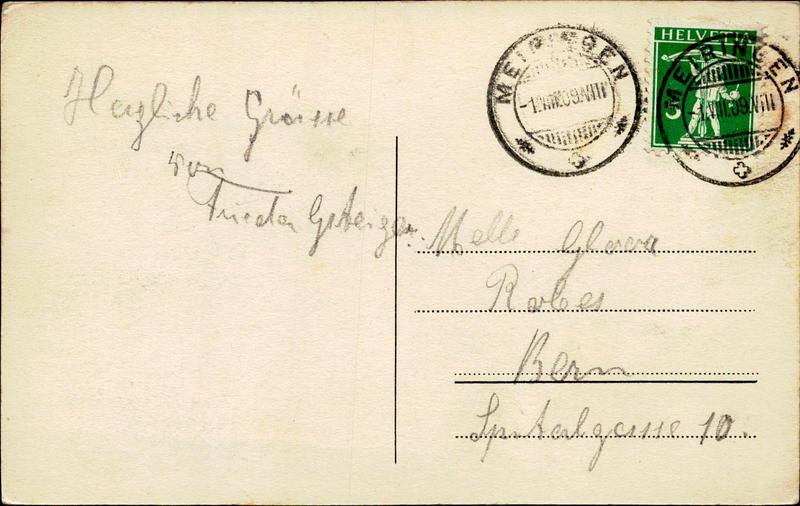 Herzliche Grüsse
von
Frieda Gsteiger.
MEIRINGEN
-1.VIII.09.VII
HELVETIA
5
MEIRINGEN
-1.VIII.09.VII
Melle
Robes
Bern
Spitalgasse 10.